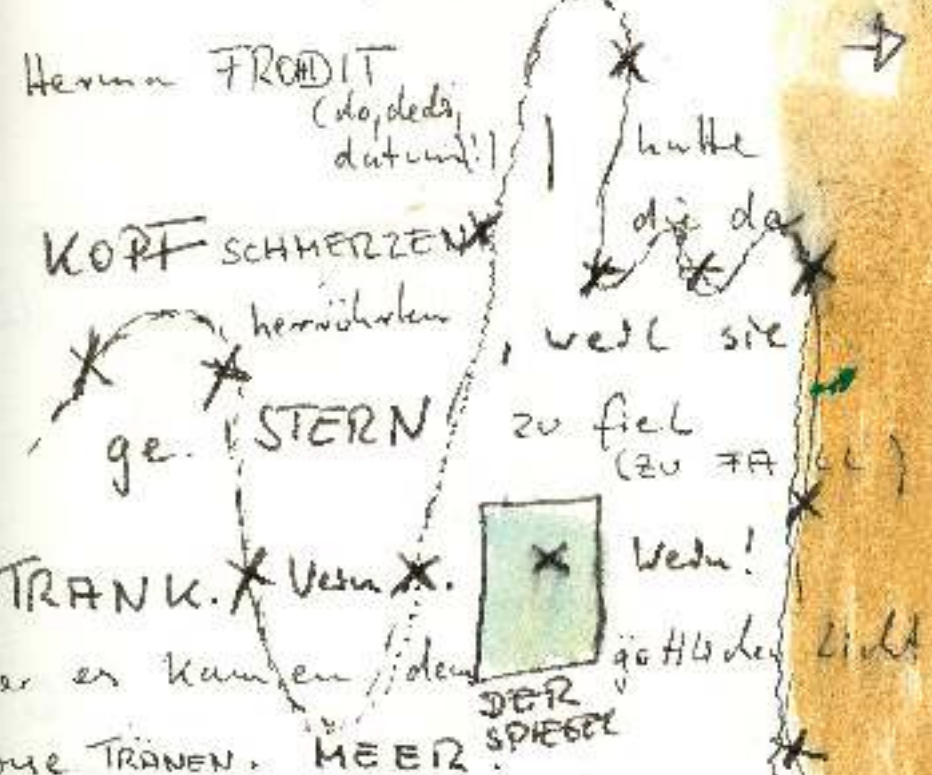 Herma FRODIT
(do, dedi,
datum!)
hatte
die da
KOPF SCHMERZEN
herrührten
, weil sie
ge. STERN
zu fiel
(ZU FALL)
TRANK.
Wein!
er es kamen dem göttlichen Licht
DER
SPIEGEL
TRÄNEN. MEER.